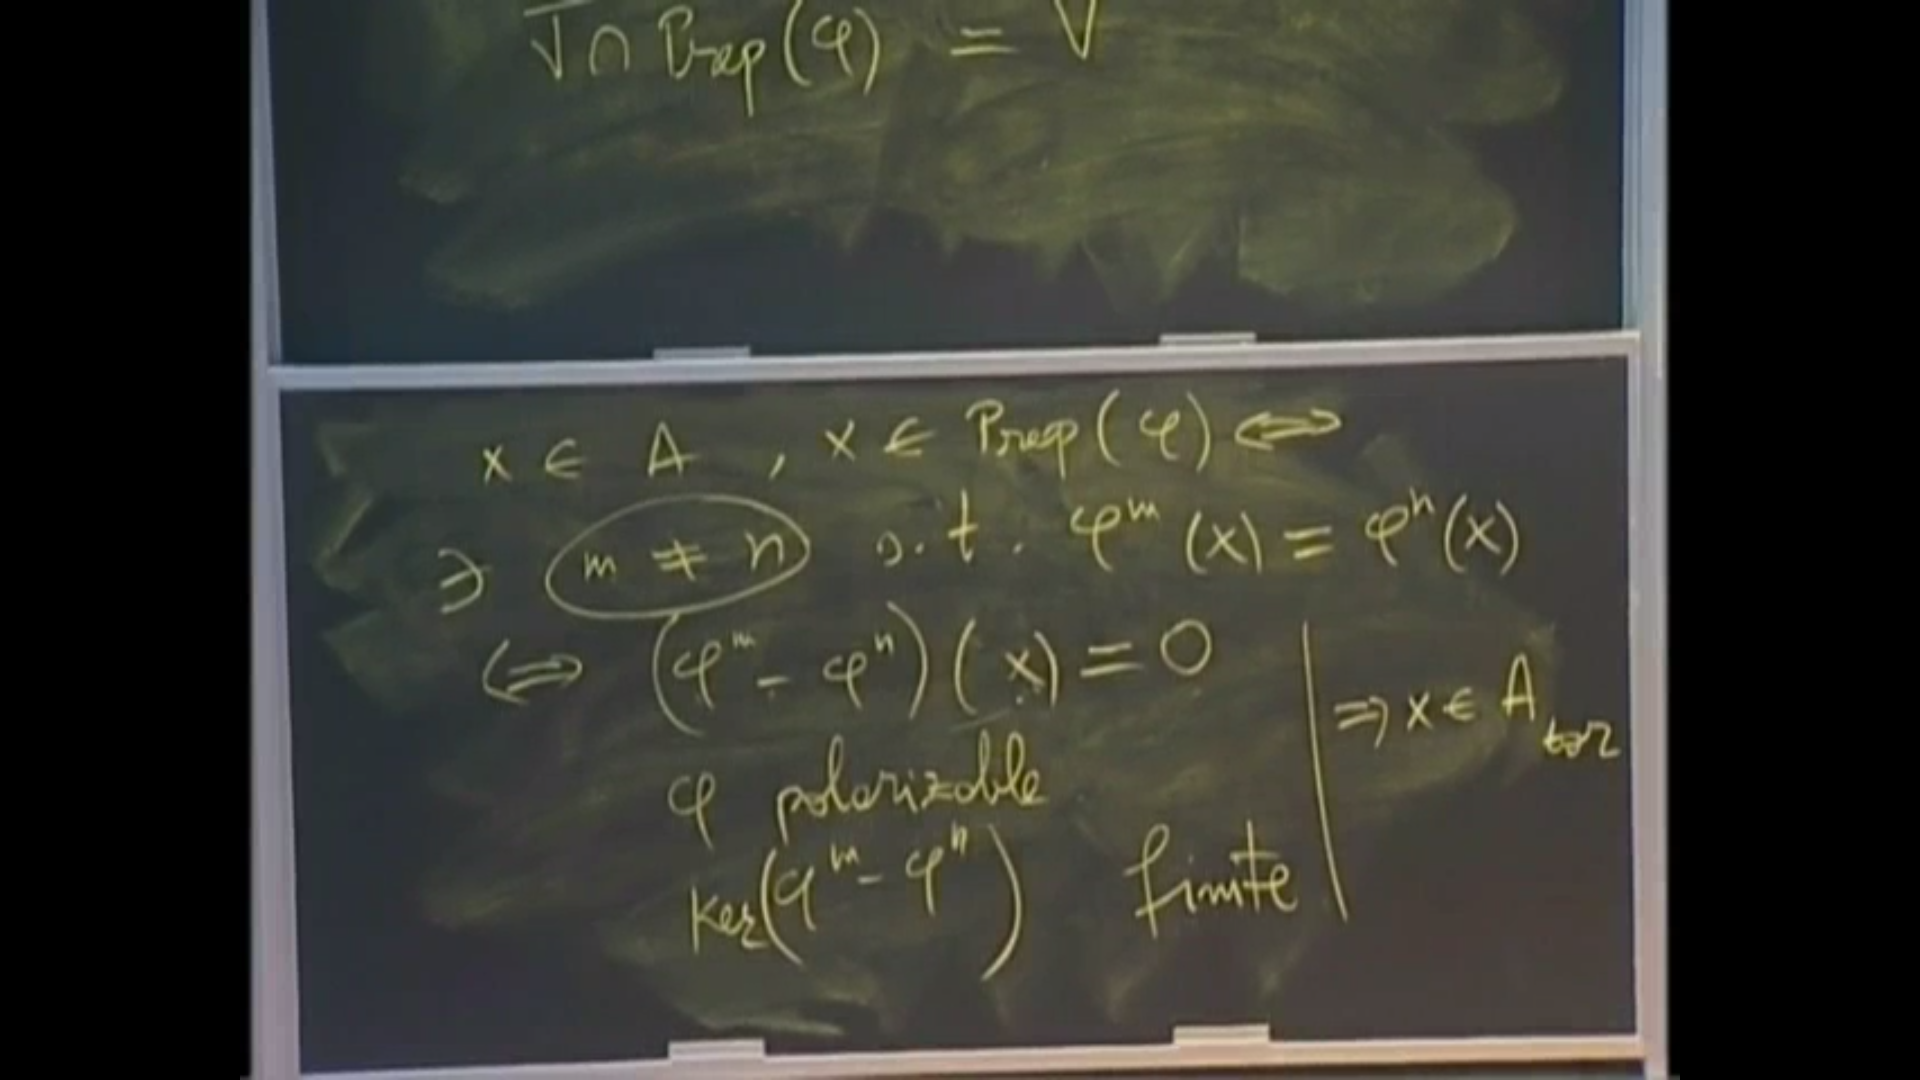 V ∩ Prep(φ) = V
x ∈ A , x ∈ Prep(φ) ⟺
∃ m ≠ n s.t. φ^m (x) = φ^n (x)
⟺ (φ^m - φ^n)(x) = 0
⟹ x ∈ A_tor
φ polarizable
Ker(φ^m - φ^n) finite